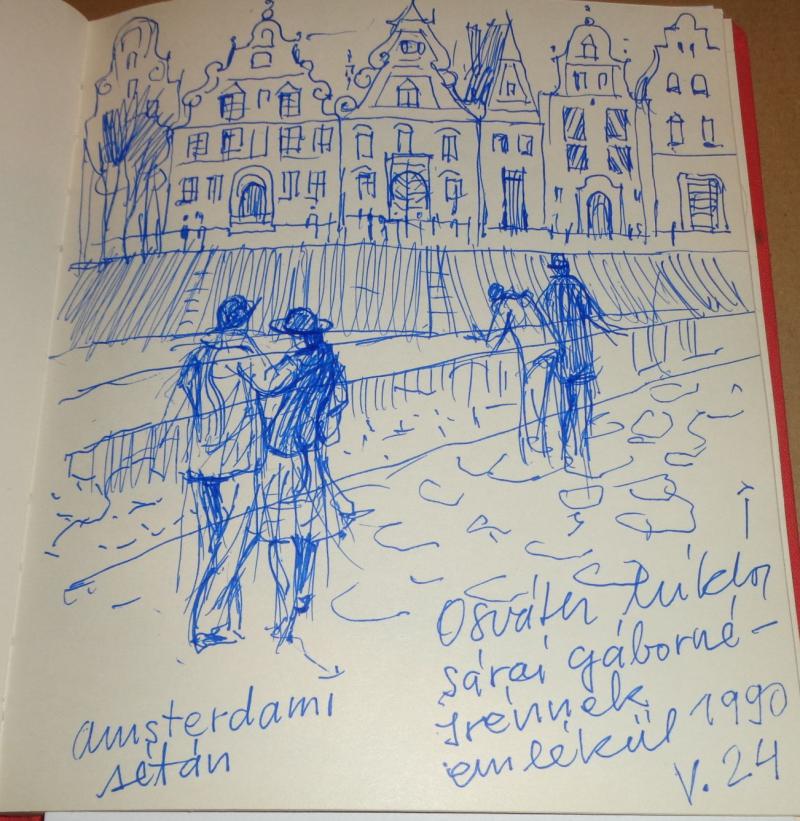 amsterdami
sétán
Osváth Miklós
sárai gáborné-
Irénnek
emlékül 1990
V. 24